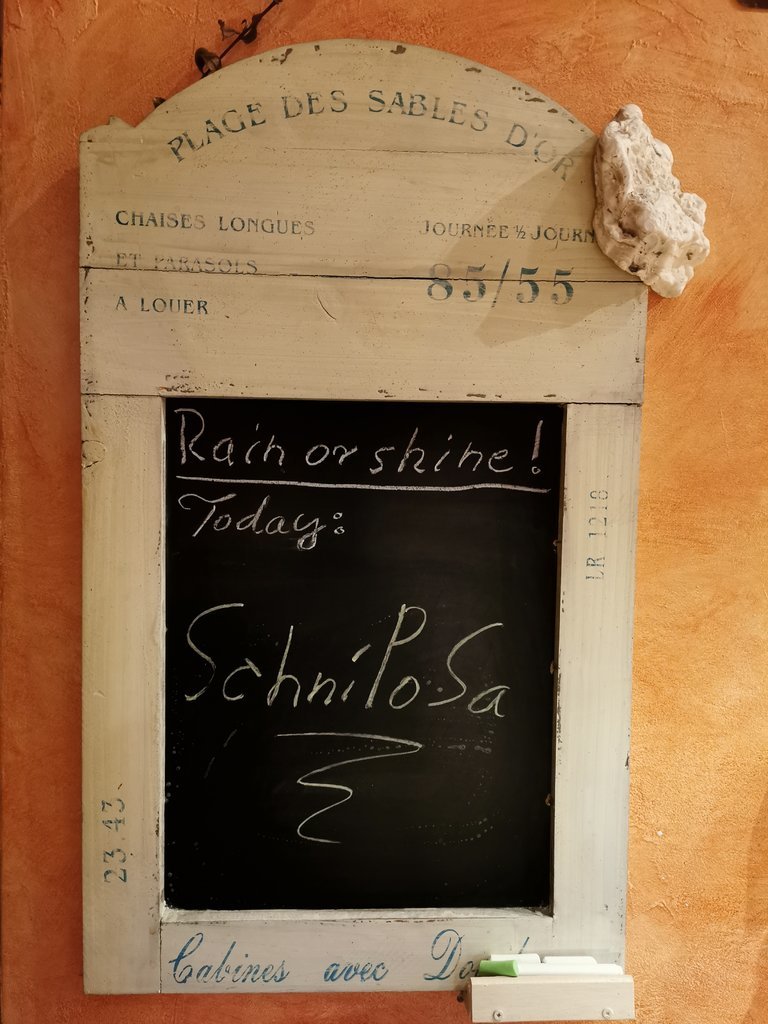 PLAGE DES SABLES D'OR
CHAISES LONGUES
ET PARASOLS
A LOUER
JOURNÉE ½ JOURN
85/55
Rain or shine!
Today:
SchniPoSa
LR 1218
23.43
Cabines avec